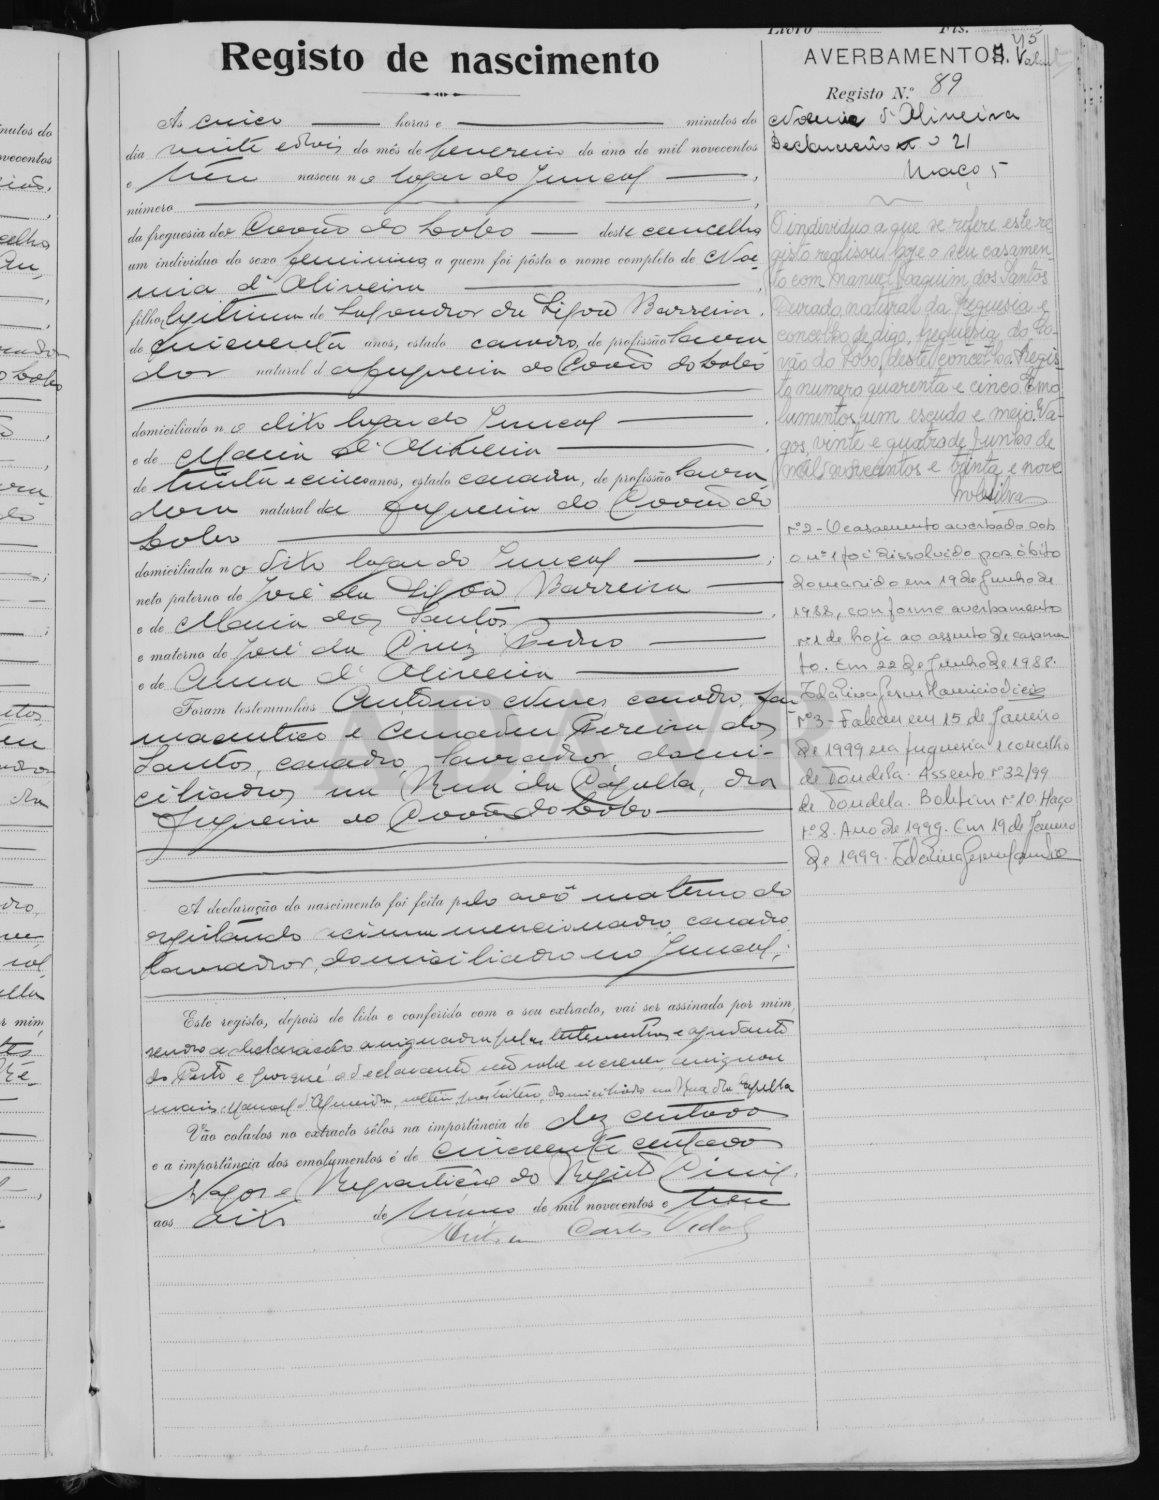 Livro Fls. 45
Registo de nascimento
Às cinco horas e minutos do
dia vinte e dois do mês de fevereiro do ano de mil novecentos
e treze nasceu no lugar do Juncal
número
da freguesia do Covão do Lobo deste concelho
um individuo do sexo feminino, a quem foi pôsto o nome completo de Noe-
mia d'Oliveira
filho legitimo de de Barreira,
de cincoenta anos, estado casado, de profissão lavra
dor natural da freguesia do Covão do Lobo
domiciliado no dito lugar do Juncal
e de Maria d'Oliveira
de trinta e cinco anos, estado casada, de profissão lavra
dora natural da freguesia do Covão do
Lobo
domiciliada no dito lugar do Juncal ;
neto paterno de José Barreira
e de Maria dos Santos ,
e materno de José da Cruz Pedro
e de Anna d'Oliveira
Foram testemunhas Antonio Neves casado, far
maceutico e Amadeu Pereira dos
Santos, casado, lavrador, domi-
ciliados na Rua da Capella, da
freguesia do Covão do Lobo
A declaração do nascimento foi feita pelo avô materno do
registando acima mencionado, casado
lavrador, domiciliado no Juncal;
Este registo, depois de lido e conferido com o seu extracto, vai ser assinado por mim,
sendo a declaração assignada pelas testemunhas e ajudante
do Posto e porque o declarante não sabe escrever, assignou
mais Manoel d'Almeida, domiciliado na Rua da Capella
Vão colados no extracto sêlos na importância de dez centavos
e a importância dos emolumentos é de cincoenta centavos
Vagos e Repartição do Registo Civil,
aos oito de Março de mil novecentos e treze
Carlos Vidal
AVERBAMENTOS.
Registo N.º 89
Noemia d'Oliveira
Declaração nº 21
Maço 5
O individuo a que se refere este re
gisto realisou hoje o seu casamen-
to com Manuel Joaquim dos Santos
Durado, natural da freguesia e
concelho, digo, freguesia do Co-
vão do Lobo, deste concelho. Regis-
to numero quarenta e cinco. Emo
lumentos, um escudo e meio. Va-
gos, vinte e quatro de Junho de
mil novecentos e trinta e nove
nº2 - O casamento averbado sob
o nº1 foi dissolvido por óbito
do marido em 19 de Junho de
1988, conforme averbamento
nº1 de hoje ao assento de casamen
to. Em 22 de Junho de 1988.
nº3 - Faleceu em 15 de Janeiro
de 1999 na freguesia e concelho
de Tondela. Assento nº 32/99
de Tondela. Boletim nº 10. Maço
nº 8. Ano de 1999. Em 19 de Janeiro
de 1999.
ADAVR